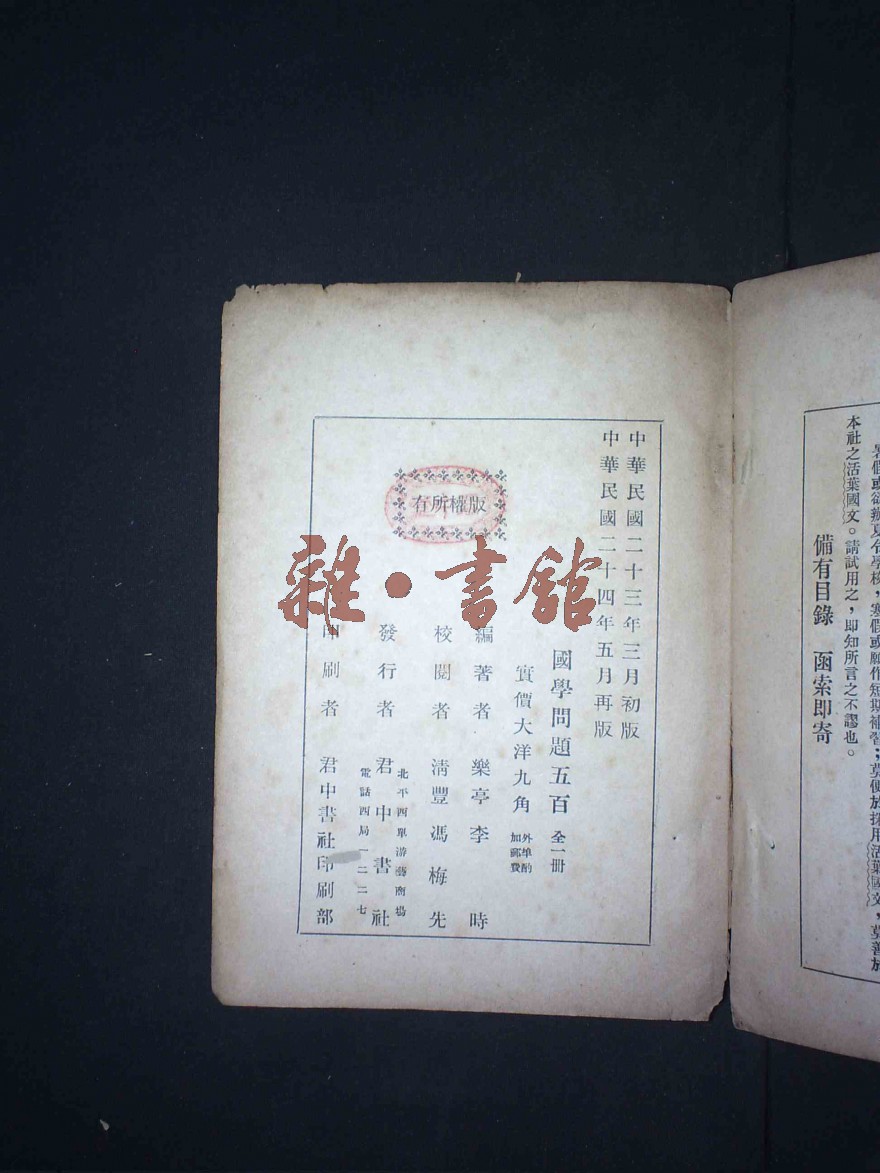 暑假或欲辦夏令學校，寒假或願作短期補習；莫便於採用活葉國文，莫善於
本社之活葉國文。請試用之，即知所言之不謬也。
備有目錄 函索即寄
中華民國二十三年三月初版
中華民國二十四年五月再版
國學問題五百 全一冊
實價大洋九角 外埠酌加郵費
編著者 樂亭李時
校閱者 清豐馮梅先
發行者 君中書社
北平西單游藝商場
電話西局一二二七
印刷者 君中書社印刷部
版權所有
雜·書館